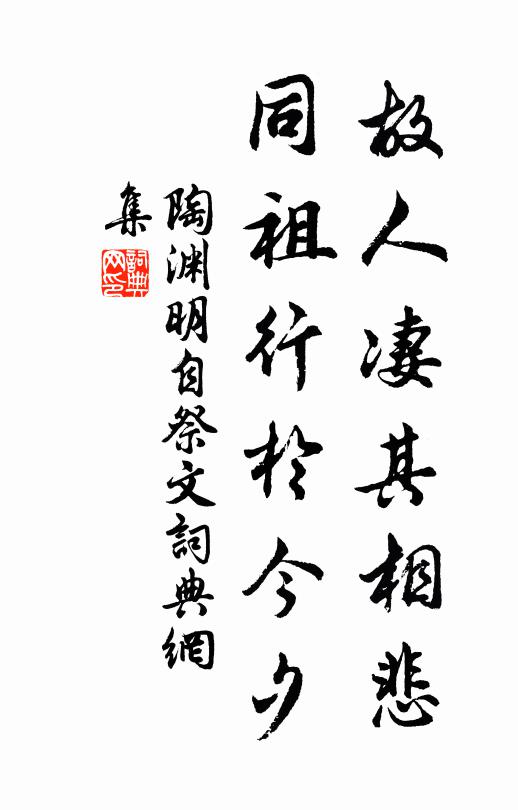 故人凄其相悲
同祖行於今夕
陶渊明自祭文詞典網
集
詞典
网印